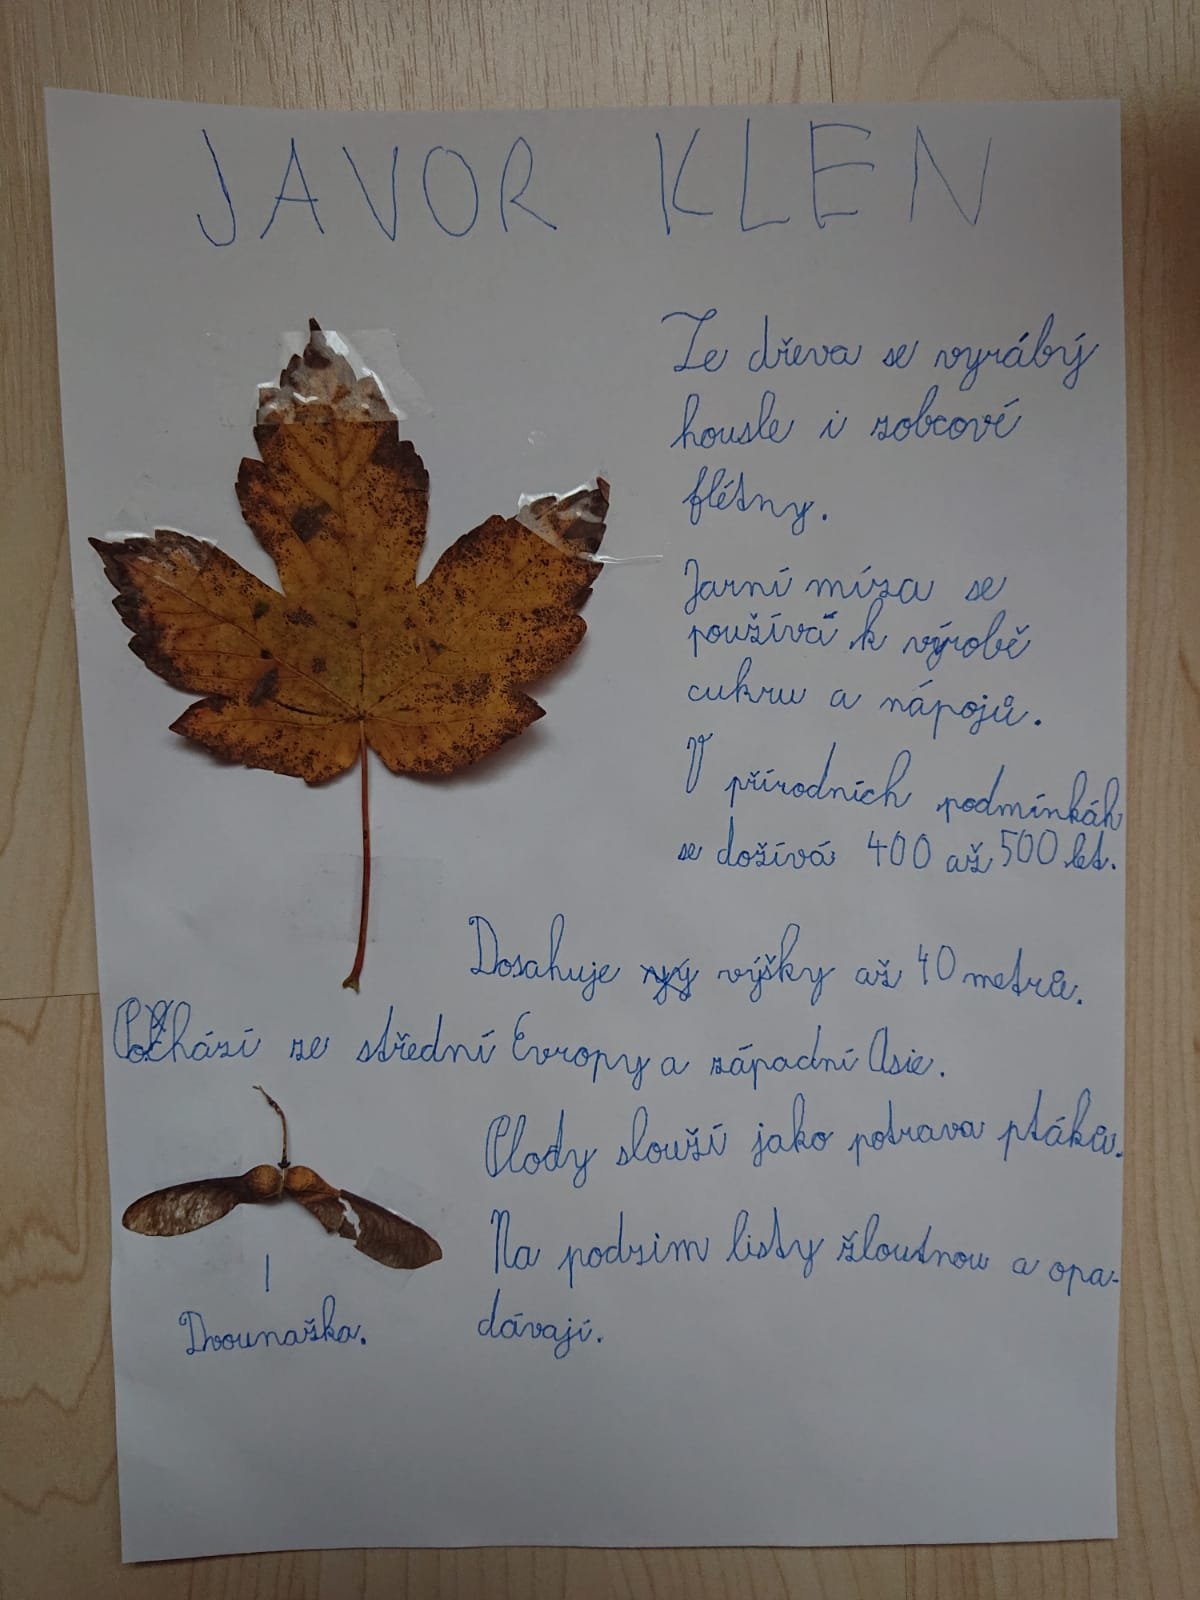 JAVOR KLEN
Ze dřeva se vyrábý
housle i zobcové
flétny.
Jarní míza se
používá k výrobě
cukru a nápojů.
V přírodních podmínkáh
se dožívá 400 až 500 let.
Dosahuje výšky až 40 metrů.
Pochází ze střední Evropy a západní Asie.
Plody slouží jako potrava ptáků.
Na podzim listy žloutnou a opa-
dávají.
Dvounažka.